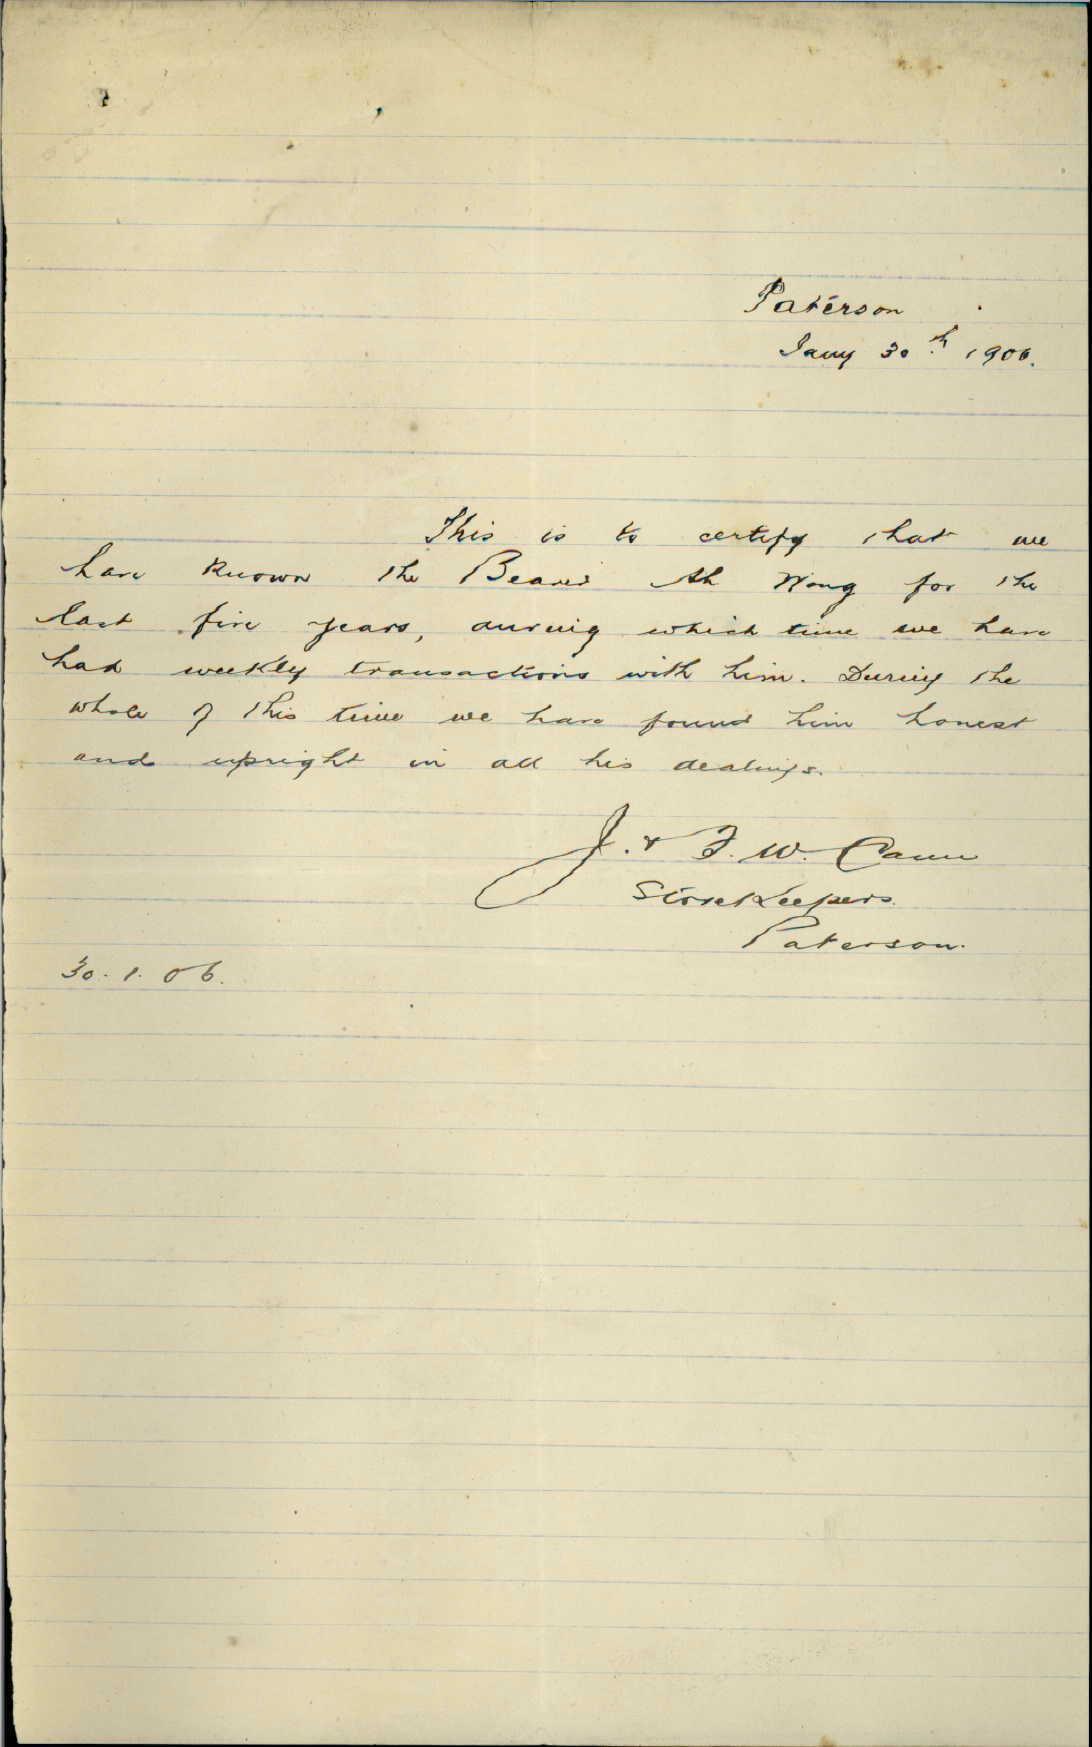 Paterson
Jany 30th 1906.
This is to certify that we
have known the Bearer Ah Wong for the
last five years, during which time we have
had weekly transactions with him. During the
whole of this time we have found him honest
and upright in all his dealings.
J. & F. W. Cann
Storekeepers.
Paterson.
30. 1. 06.